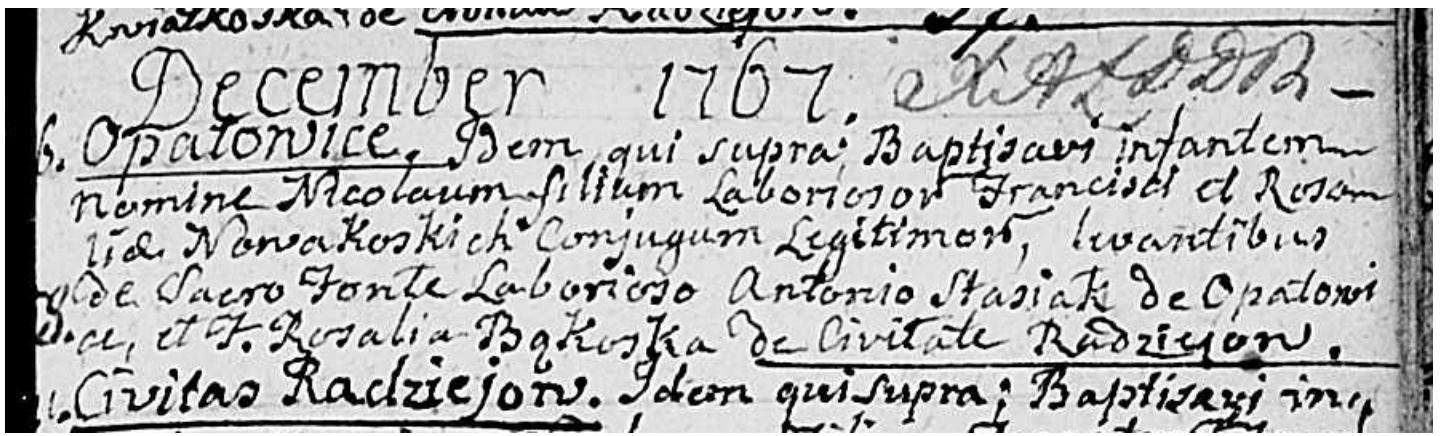 Kwiatkoska de Civitate Radziejow.
December 1767.
6. Opatowice. Idem qui supra; Baptisavi infantem
nomine Nicolaum filium Laborioso͠r Francisci et Rosa
liæ Nowakoskich Conjugum Legitimo͠r, levantibus
de Sacro Fonte Laborioso Antonio Stasiak de Opatowi
ce, et F. Rosalia Bąkoska de Civitate Radziejow.
Civitas Radziejow. Idem qui supra; Baptisavi in